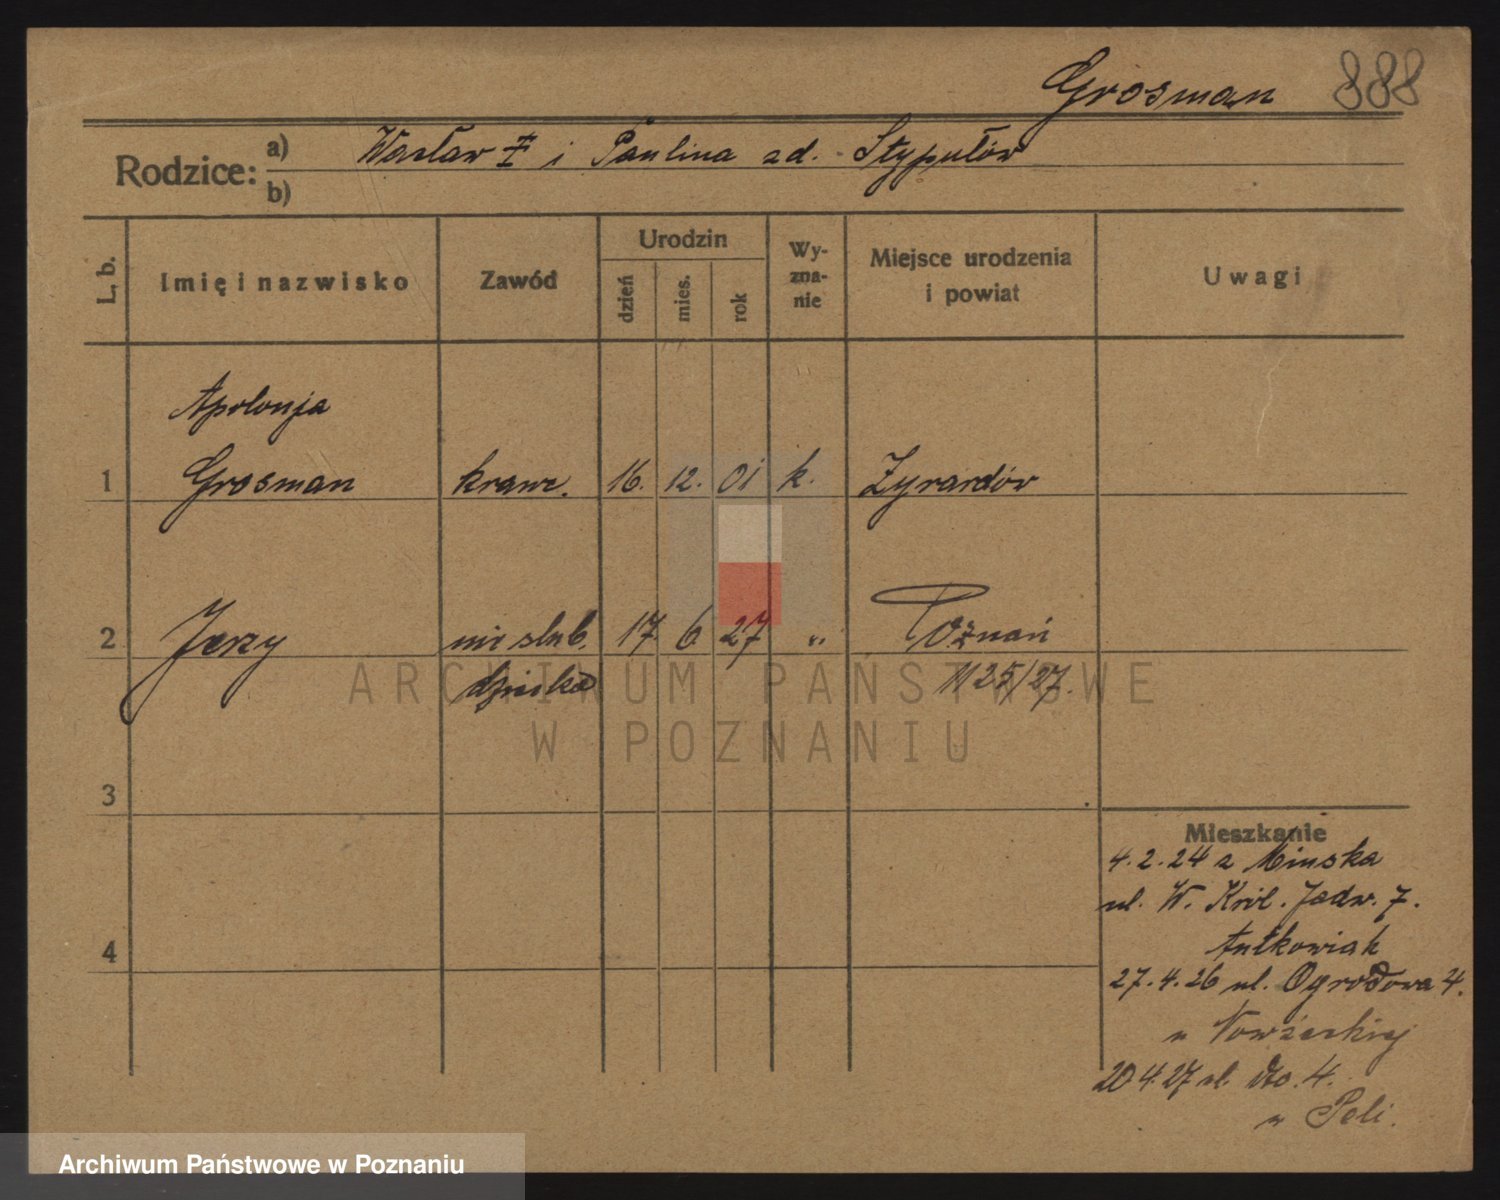 Grosman 888
Rodzice: a) Wacław ‡ i Paulina zd. Stypułów
b)
L. b. Imię i nazwisko Zawód Urodzin dzień mies. rok Wy-zna-nie Miejsce urodzenia i powiat Uwagi
Apolonja
1 Grosman krawc. 16. 12. 01 k. Żyrardów
2 Jerzy nieślub. 17. 6 27 " Poznań
dziecko 1125/27.
ARCHIWUM PAŃSTWOWE
W POZNANIU
3
Mieszkanie
4.2.24 z Mińska
ul. W. Król. Jadw. 7.
Antkowiak
4
27.4.26 ul. Ogrodowa 4.
u
20.4.27 ul. dto. 4.
u Peli.
Archiwum Państwowe w Poznaniu